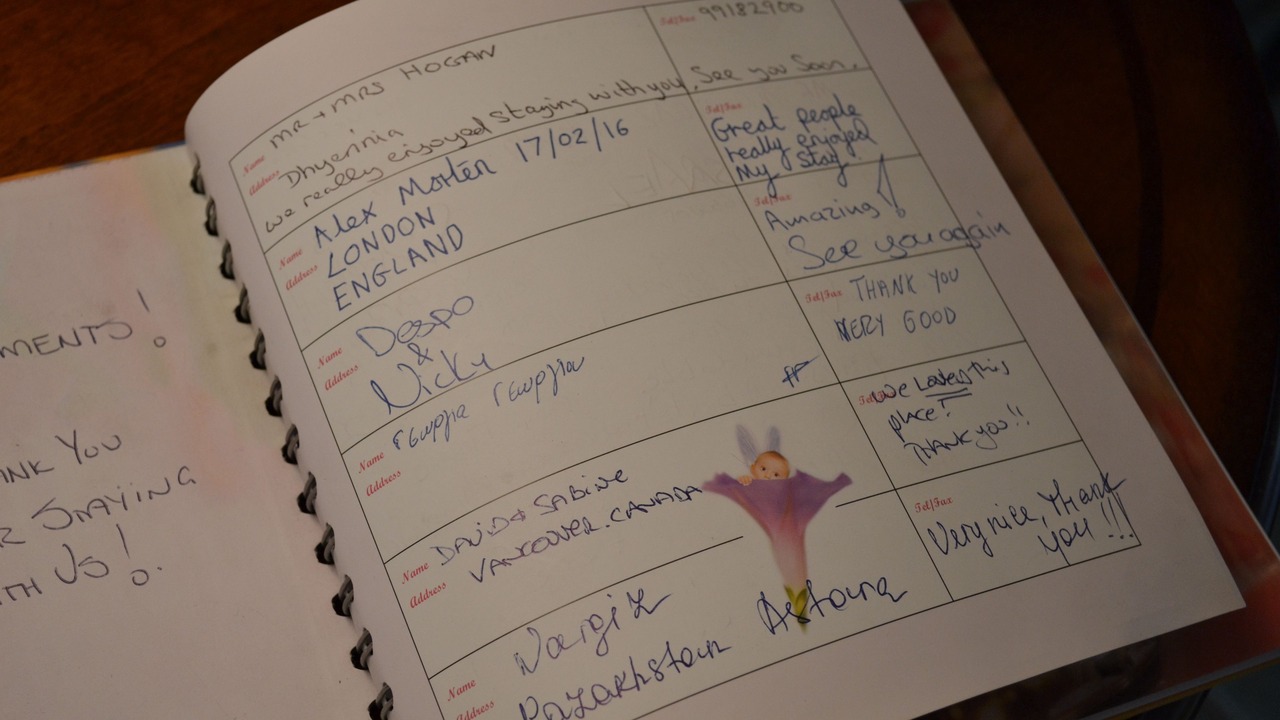 MENTS!
ANK YOU
R STAYING
TH US!
Name MR + MRS HOGAN
Tel/Fax 99182900
Address Dhyerinia
we really enjoyed staying with you. See you Soon.
Name Alex Morten 17/02/16
Address LONDON
ENGLAND
Tel/Fax
Great people
really enjoyed
My stay!
Name Despo
Address &
Nicky
Tel/Fax
Amazing!
See you again
Name Γεωργία Γεωργίου
Address
Tel/Fax THANK YOU
VERY GOOD
Name DAVID & SABINE
Address VANCOUVER. CANADA
Tel/Fax
We Loved this
place!
THANK YOU!!
Name Nargiz
Address Kazakhstan Astana
Tel/Fax
Very nice, Thank
you!!!